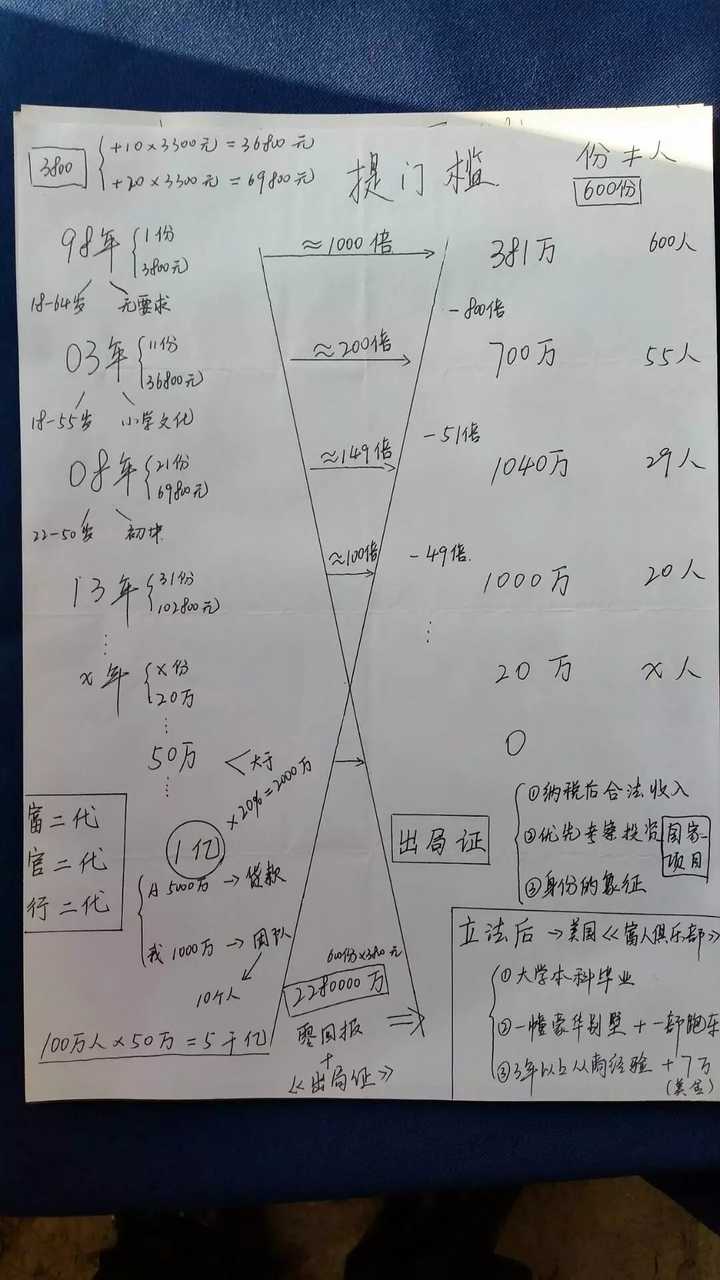 3800 { +10×3300元 = 36800元
+20×3300元 = 69800元
提门槛
份≠人
600份
98年 { 1份
3800元
18-64岁 无要求
≈1000倍
381万 600人
-800倍
03年 { 11份
36800元
18-55岁 小学文化
≈200倍
700万 55人
08年 { 21份
69800元
22-50岁 初中
≈149倍
-51倍
1040万 29人
13年 { 31份
102800元
≈100倍
-49倍
1000万 20人
x年 { x份
20万
20万 x人
50万 < 大于
0
×20%=2000万
富二代
官二代
行二代
1亿
A 5000万 → 贷款
我 1000万 → 团队
10个人
100万人×50万=5千亿
600份×3800元
2280000万
零回报
+
《出局证》
出局证
①纳税后合法收入
②优先专案投资 国家项目
③身份的象征
立法后→美国《富人俱乐部》
①大学本科毕业
②一幢豪华别墅+一部跑车
③3年以上从商经验+7万
(美金)